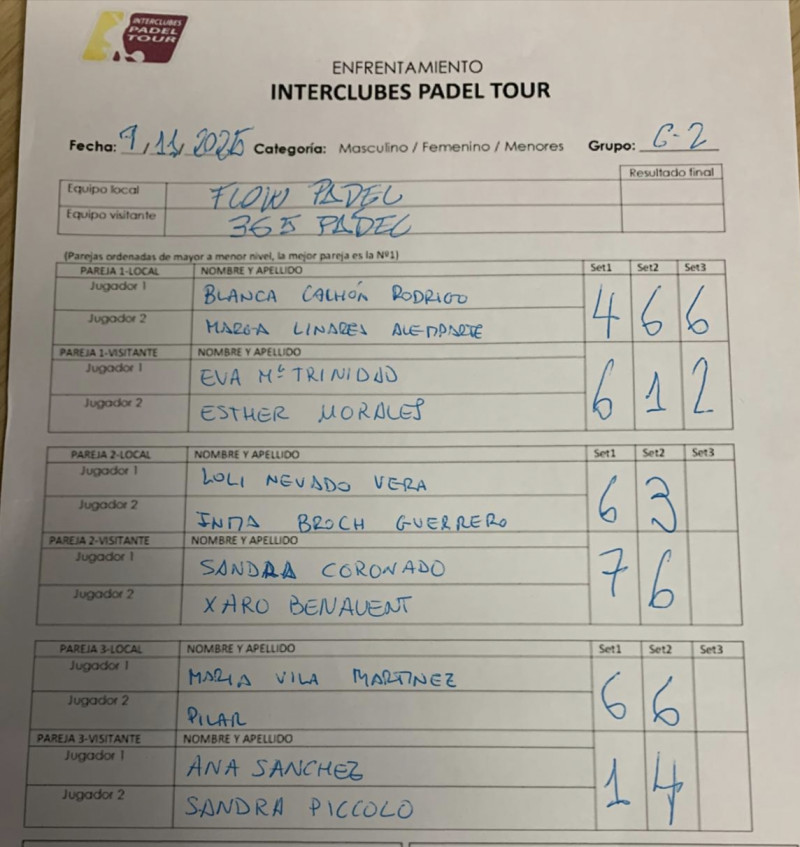 INTERCLUBES
PADEL
TOUR
ENFRENTAMIENTO
INTERCLUBES PADEL TOUR
Fecha: 9/11/2025 Categoría: Masculino / Femenino / Menores Grupo: G-2
Resultado final
Equipo local FLOW PADEL
Equipo visitante 365 PADEL
(Parejas ordenadas de mayor a menor nivel, la mejor pareja es la Nº1)
PAREJA 1-LOCAL NOMBRE Y APELLIDO Set1 Set2 Set3
Jugador 1 BLANCA CALHÓN RODRIGO
4 6 6
Jugador 2 MARGA LINARES ALEMPARTE
PAREJA 1-VISITANTE NOMBRE Y APELLIDO
Jugador 1 EVA Mª TRINIDAD
6 1 2
Jugador 2 ESTHER MORALES
PAREJA 2-LOCAL NOMBRE Y APELLIDO Set1 Set2 Set3
Jugador 1 LOLI NEVADO VERA
6 3
Jugador 2 INMA BROCH GUERRERO
PAREJA 2-VISITANTE NOMBRE Y APELLIDO
Jugador 1 SANDRA CORONADO
7 6
Jugador 2 XARO BENAVENT
PAREJA 3-LOCAL NOMBRE Y APELLIDO Set1 Set2 Set3
Jugador 1 MARIA VILA MARTINEZ
6 6
Jugador 2 PILAR
PAREJA 3-VISITANTE NOMBRE Y APELLIDO
Jugador 1 ANA SANCHEZ
1 4
Jugador 2 SANDRA PICCOLO